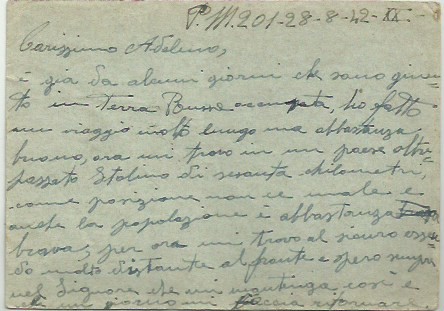 P.M. 201-28-8-42-XX.
Carissimo Adelmo,
è gia da alcuni giorni che sono giun-
to in terra Russa occupata, ho fatto
un viaggio molto lungo ma abbastanza
buono, ora mi trovo in un paese oltre
passato Stalino di sesanta chilometri,
come posizione non ce male e
anche la popolazione è abbastanza
brava, per ora mi trovo al sicuro essen-
do molto distante al fronte e spero sempre
nel Signore che mi mantenga così e
che un giorno mi faccia ritornare